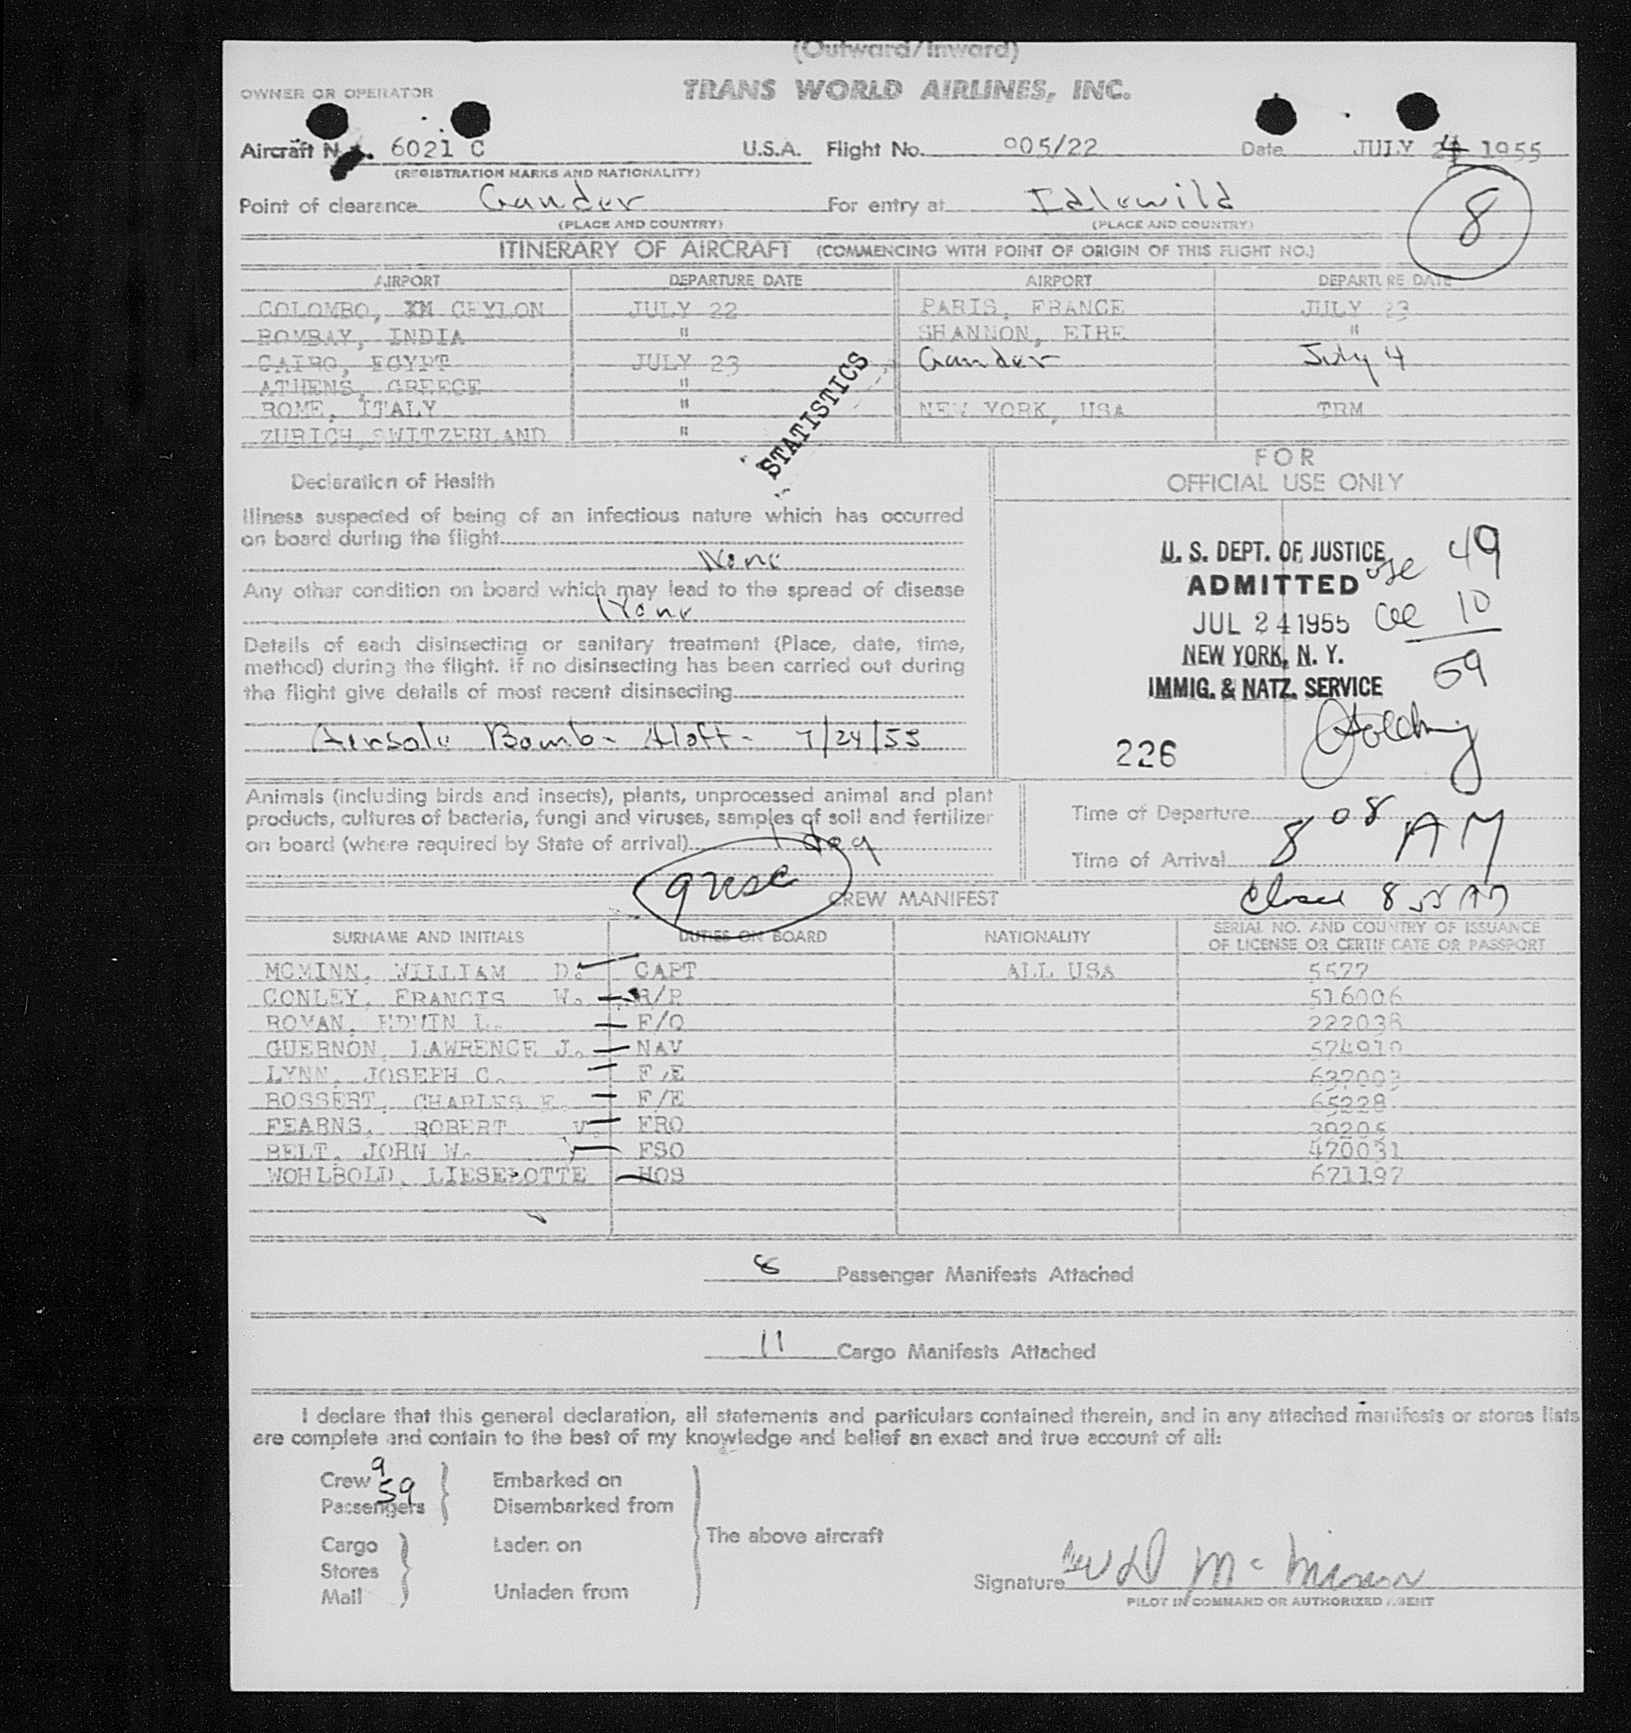 (Outward/Inward)
OWNER OR OPERATOR TRANS WORLD AIRLINES, INC.
Aircraft 6021 C U.S.A. Flight No. 005/22 Date JULY 24 1955
(REGISTRATION MARKS AND NATIONALITY)
Point of clearance Gander For entry at Idlewild 8
(PLACE AND COUNTRY) (PLACE AND COUNTRY)
ITINERARY OF AIRCRAFT (COMMENCING WITH POINT OF ORIGIN OF THIS FLIGHT NO.)
AIRPORT DEPARTURE DATE AIRPORT DEPARTURE DATE
COLOMBO, XM CEYLON JULY 22 PARIS, FRANCE JULY 23
BOMBAY, INDIA " SHANNON, EIRE "
CAIRO, EGYPT JULY 23 Gander July 4
ATHENS, GREECE "
ROME, ITALY " NEW YORK, USA TRM
ZURICH, SWITZERLAND "
STATISTICS
Declaration of Health
Illness suspected of being of an infectious nature which has occurred
on board during the flight
None
Any other condition on board which may lead to the spread of disease
None
Details of each disinsecting or sanitary treatment (Place, date, time,
method) during the flight. If no disinsecting has been carried out during
the flight give details of most recent disinsecting
Aersole Bomb - Aloft - 7/24/55
FOR
OFFICIAL USE ONLY
U. S. DEPT. OF JUSTICE usc 49
ADMITTED
JUL 24 1955 ac 10
NEW YORK, N. Y.
IMMIG. & NATZ. SERVICE 59
226
Animals (including birds and insects), plants, unprocessed animal and plant
products, cultures of bacteria, fungi and viruses, samples of soil and fertilizer
on board (where required by State of arrival) 1 dog
Time of Departure
Time of Arrival 8 08 AM
9 usc
CREW MANIFEST Closed 8 55 AM
SURNAME AND INITIALS DUTIES ON BOARD NATIONALITY SERIAL NO. AND COUNTRY OF ISSUANCE
OF LICENSE OR CERTIFICATE OR PASSPORT
MCMINN, WILLIAM D. CAPT ALL USA 5577
CONLEY, FRANCIS W. R/P 516006
ROMAN, EDWIN L. F/O 222038
GUERNON, LAWRENCE J. NAV 574910
LYNN, JOSEPH C. F/E 637003
BOSSERT, CHARLES E. F/E 65228
FEARNS, ROBERT V. FRO 39205
BELT, JOHN W. FSO 470031
WOHLBOLD, LIESELOTTE HOS 671197
8 Passenger Manifests Attached
11 Cargo Manifests Attached
I declare that this general declaration, all statements and particulars contained therein, and in any attached manifests or stores lists
are complete and contain to the best of my knowledge and belief an exact and true account of all:
Crew 9 Embarked on
Passengers 59 Disembarked from
The above aircraft
Cargo Laden on
Stores
Mail Unladen from
Signature WD McMinn
PILOT IN COMMAND OR AUTHORIZED AGENT